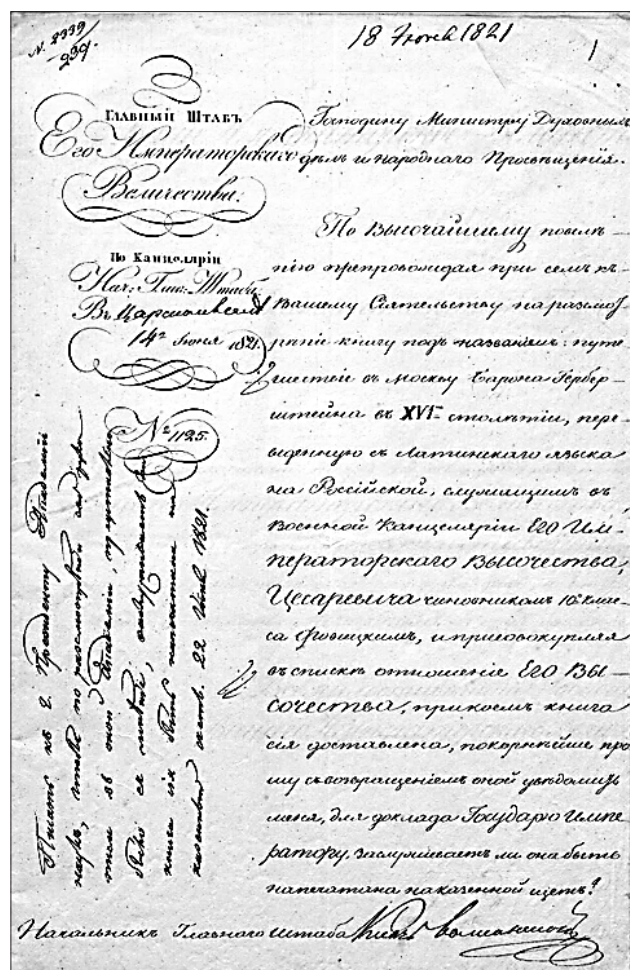 N. 2339/239.
18 Июня 1821
1
Главный Штабъ
Его Императорскаго
Величества.
По Канцеляріи
Нач: Глав: Штаба
Въ Царскомъ Селѣ
14го Іюня 1821.
№ 1125.
Господину Министру Духовныхъ
дѣлъ и народнаго Просвѣщенія.
По Высочайшему повелѣ-
нію препровождая при семъ къ
Вашему Сіятельству на разсмо-
трѣніе книгу подъ названіемъ: путе-
шествіе въ Москву Барона Гербер-
штейна въ XVI-мъ столѣтіи, пере-
веденную съ Латинскаго языка
на Россійской, служащимъ въ
военной Канцеляріи ЕГО Им-
ператорскаго Высочества,
Цесаревича чиновникомъ 10 клас-
са Фовицкимъ, и присовокупляя
въ спискѣ отношеніе ЕГО ВЫ-
СОЧЕСТВА, при коемъ книга
сія доставлена, покорнѣйше про-
шу съ возвращеніемъ оной увѣдомить
меня, для доклада Государю Импе-
ратору, заслуживаетъ ли она быть
напечатана на казенной щетъ?
Начальникъ Главнаго Штаба Князь Волконской
Писать къ г. Президенту Академіи
наукъ, чтобъ по разсмотрѣніи
въ оной Академіи,
книга сія быть напечатана на
22 Іюня 1821.